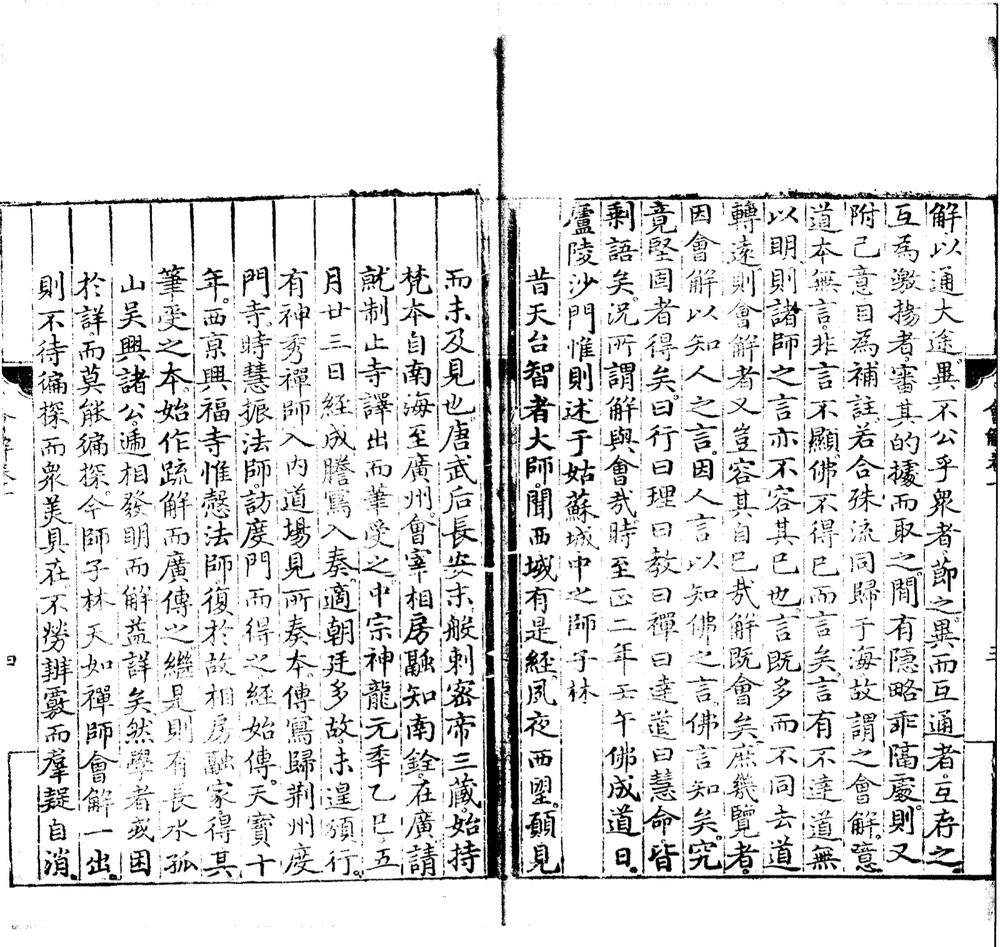 解以通大途異不公乎衆者節之異而互通者互存之
互為激揚者審其的據而取之間有隠略乖隔處則又
附己意目為補註若合殊流同歸于海故謂之會解噫
道本無言非言不顯佛不得已而言矣言有不達道無
以明則諸師之言亦不容其已也言既多而不同去道
轉遠則會解者又豈容其自已哉解既會矣庶幾覽者
因會解以知人之言因人言以知佛之言佛言知矣究
竟堅固者得矣曰行曰理曰教曰禪曰達道曰慧命皆
剩語矣況所謂解與會哉時至正二年壬午佛成道日
廬陵沙門惟則述于姑蘇城中之師子林
昔天台智者大師聞西域有是經夙夜西望願見
而未及見也唐武后長安末般剌密帝三藏始持
梵本自南海至廣州會宰相房融知南銓在廣請
就制止寺譯出而筆受之中宗神龍元季乙巳五
月廿三日經成謄寫入奏適朝廷多故未遑頒行
有神秀禪師入內道場見所奏本傳寫歸荆州度
門寺時慧振法師訪度門而得之經始傳天寶十
年西京興福寺惟慤法師復於故相房融家得其
筆受之本始作疏解而廣傳之繼是則有長水孤
山吳興諸公遞相發明而解益詳矣然學者或困
於詳而莫能徧探今師子林天如禪師會解一出
則不待徧探而衆美具在不勞辨覈而羣疑自消
會解卷一
三
會解卷一
四